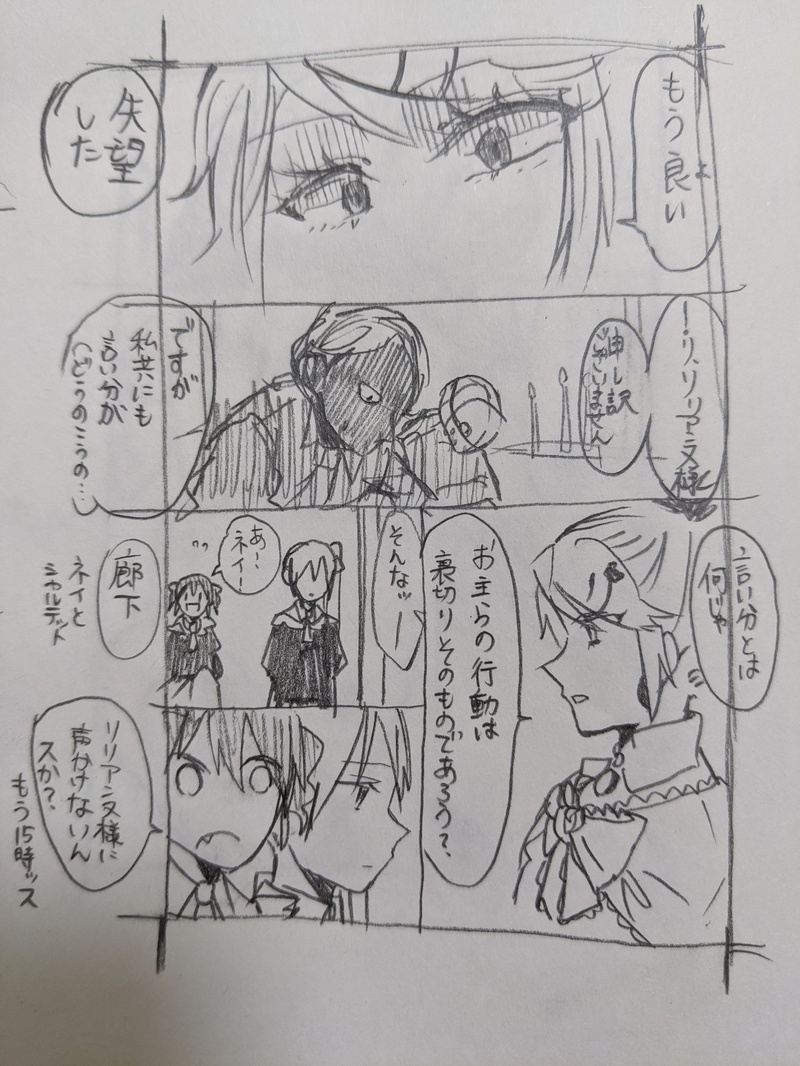 もう良い
失望
した
！リ、リリアンヌ様
申し訳
ございません
ですが
私共にも
言い分が
（どうのこうの…）
言い分とは
何じゃ
お主らの行動は
裏切りそのものであろう？
そんなッ
あ〜
ネイ！
廊下
ネイと
シャルテット
リリアンヌ様に
声かけないん
スか？
もう15時ッス